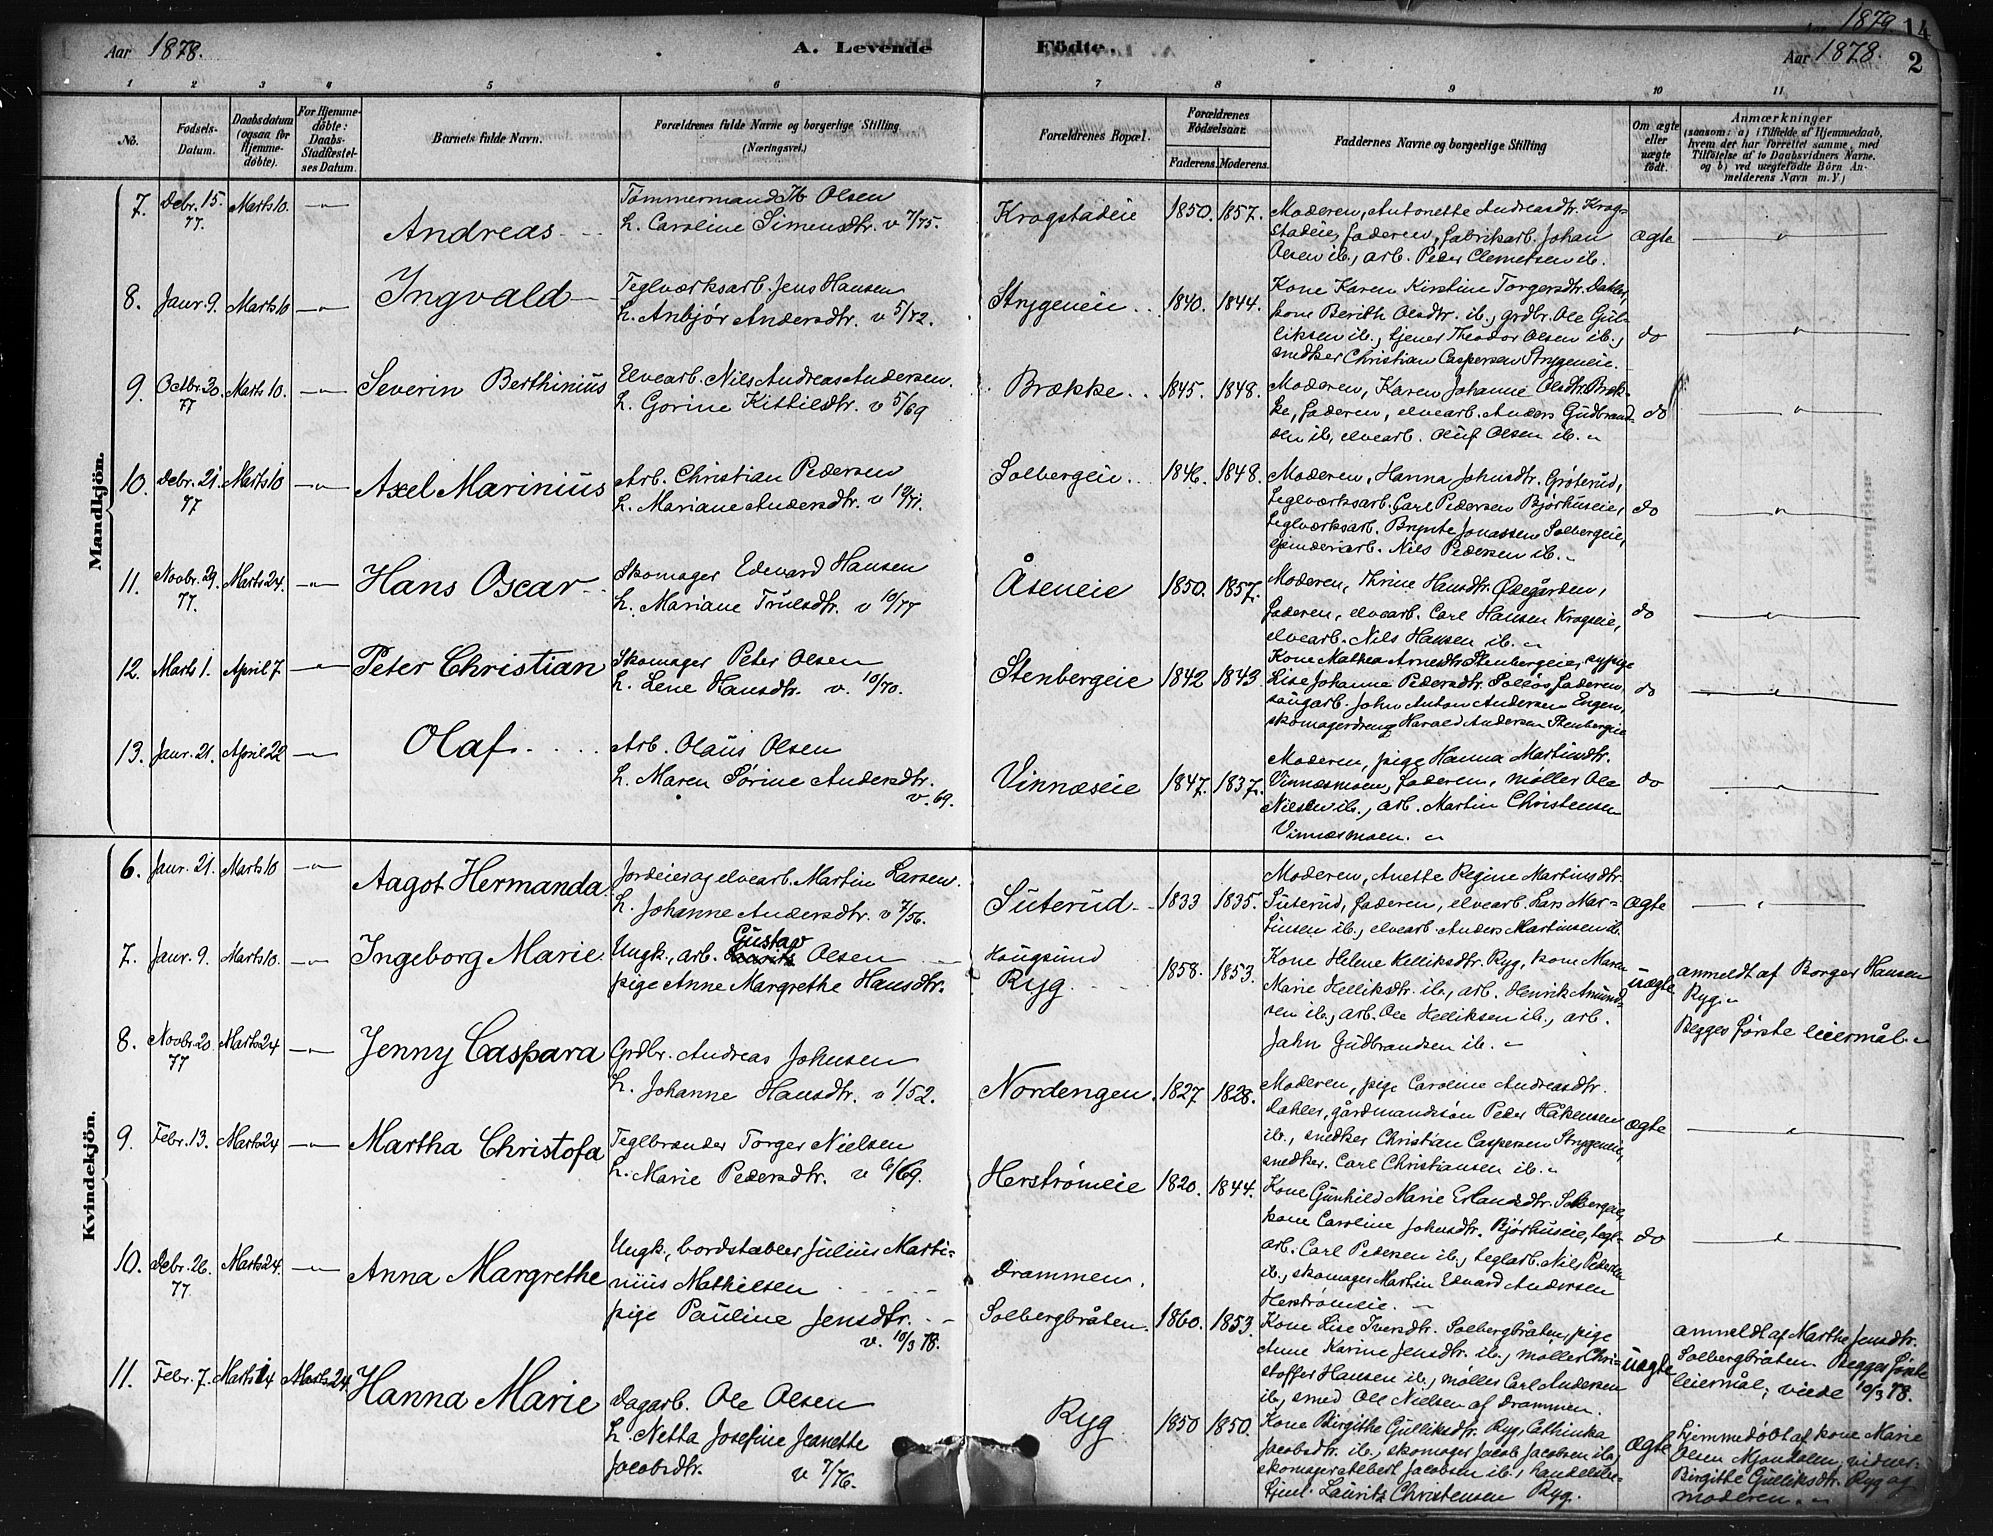 Aar 1878.
A. Levende
Fødte.
1879 14
Aar 1878. 2
1 2 3 4 5 6 7 8 9 10 11
No.
Fødsels-Datum.
Daabsdatum (ogsaa for Hjemmedøbte).
For Hjemmedøbte: Daabs-Stadfæstelses Datum.
Barnets fulde Navn.
Forældrenes fulde Navne og borgerlige Stilling (Næringsvei.)
Forældrenes Bopæl.
Forældrenes Fødselsaar.
Faderens. Moderens.
Faddernes Navne og borgerlige Stilling
Om ægte eller uægte født.
Anmærkninger
(saasom: a) i Tilfælde af Hjemmedaab,
hvem der har forrettet samme, med
Tilføielse af to Daabsvidners Navne.
og b) ved uægtefødte Børn An-
melderens Navn m. V.)
Mandkjön.
7. Debr. 15. 77. Marts 10. Andreas
Tømmermand Olsen
h. Caroline Simensdtr. v 7/75.
Krogstadeie 1850. 1857.
Moderen, Antonette Andreasdtr. Krog-
stadeie, faderen, fabrikarb. Johan
Olsen ib., arb. Peder Clemetsen ib.
ægte
8. Janr. 9. Marts 10 Ingvald
Teglværksarb. Jens Hansen
h. Anbjør Andersdtr. v 5/72.
Strygeneie 1840. 1844.
Kone Karen Kirstine Torgersdtr. Dahler,
kone Berith Olsdtr. ib., grdbr. Ole Gul-
liksen ib., tjener Theodor Olsen ib.,
snedker Christian Caspersen Strygeneie.
do
9. Octbr. 20. 77 Marts 10. Severin Berthinius
Elvearb. Nils Andreas Andersen.
h. Gorine Kittilsdtr. v 5/69
Brække 1845. 1848.
Moderen, Karen Johanne Olsdtr. Bræk-
ke, faderen, elvearb. Anders Gudbrand-
sen ib., elvearb. Oluf Olsen ib.
do
10. Debr. 21. 77 Marts 10 Axel Marinius
Arb. Christian Pedersen
h. Mariane Andersdtr. v 10/71.
Solbergeie 1846. 1848.
Moderen, Hanna Johnsdtr. Grøterud,
teglværksarb. Carl Pedersen Bjørhuseie,
teglværksarb. Brynte Jonassen Solbergeie,
spinderiarb. Nils Pedersen ib.
do
11. Novbr. 29. 77. Marts 24. Hans Oscar
Skomager Edevard Hansen
h. Mariane Truelsdtr. v 10/77
Åseneie 1850. 1857.
Moderen, Thrine Hansdtr. Ødegården,
faderen, elvearb. Carl Hansen Krogseie,
elvearb. Nils Hansen ib.
do
12. Marts 1. April 7. Peter Christian
Skomager Peter Olsen
h. Lene Hansdtr. v. 10/70.
Stenbergeie 1842 1843
Kone Mathea Arnesdtr. Stenbergeie, sypige
Lise Johanne Pedersdtr. faderen,
saugarb. John Anton Andersen Engen,
skomagerdreng Harald Andersen Stenbergeie
do
13. Janr. 21. April 22 Olaf
Arb. Olaus Olsen
h. Maren Sørine Andersdtr.
v. 69.
Vinnæseie 1847. 1837.
Moderen, pige Hanna Martinsdtr.
Vinnæsmoen, faderen, møller Ole
Nielsen ib., arb. Martin Christensen
Vinnæsmoen.
do
Kvindekjön.
6. Janr. 21. Marts 10 Aagot Hermanda
Jordeier og elvearb. Martin Larsen.
h. Johanne Andersdtr. v 7/56.
Suterud 1833 1835.
Moderen, Anette Regine Martinsdtr.
Suterud, faderen, elvearb. Lars Mar-
tinsen ib., elvearb. Anders Martinsen ib.
ægte
7. Janr. 9. Marts 10. Ingeborg Marie
Ungk., arb. Gustav Olsen
pige Anne Margrethe Hansdtr.
Hougsund
Ryg 1858. 1853.
Kone Helene Helliksdtr. Ryg, kone Maren
Marie Helliksdtr. ib., arb. Henrik Amund-
sen ib., arb. Ole Helliksen ib., arb.
Jahn Gudbrandsen ib.
uægte
anmeldt af Borger Hansen
Ryg.
Begges første leiermål
8. Novbr. 20. 77 Marts 24 Jenny Caspara
Grdbr. Andreas Johnsen
h. Johanne Hansdtr. v 1/52.
Nordengen 1827 1828.
Moderen, pige Caroline Andreasdtr.
Dahler, gårdmandssøn Peder Håkensen
ib., snedker Christian Caspersen Strygeneie,
snedker. Carl Christiansen ib.
ægte
9. Febr. 13. Marts 24 Martha Christofa
Teglbrænder Torger Nielsen
h. Marie Pedersdtr. v 6/69.
Herstrømeie 1820. 1844.
Kone Gunhild Marie Erlandsdtr. Solbergeie,
kone Caroline Johnsdtr. Bjørhuseie, tegl-
arb. Carl Pedersen ib., teglarb. Nils Pedersen
ib., skomager Martin Edvard Andersen
Herstrømeie.
do
10. Debr. 26. 77 Marts 24. Anna Margrethe
Ungk., bordstabler Julius Marti-
nius Mathiesen
pige Pauline Jensdtr.
v. 10/3 78.
Drammen.
Solbergbråten. 1860. 1853.
Kone Lise Iversdtr. Solbergbråten, pige
Anne Karine Jensdtr. ib., møller Chri-
stoffer Hansen ib., møller Carl Andersen
ib., smed Ole Nielsen af Drammen.
uægte
anmeldt af Marthe Jensdtr.
Solbergbråten. Begges første
leiermål, viede 10/3 78.
11. Febr. 7. Marts 14 Marts 24. Hanna Marie
Dagarb. Ole Olsen
h. Netta Josefine Jeanette
Jacobsdtr. v 7/76.
Ryg 1850 1850.
Kone Birgithe Gulliksdtr. Ryg, Cathinka
Jacobsdtr. ib., skomager Jacob Jacobsen ib.,
skomager Albert Jacobsen ib., handelsbe-
tjent Lauritz Christensen Ryg.
ægte
hjemmedøbt af kone Marie
Olsen Mjøndalen, vidner
Birgithe Gulliksdtr. Ryg og
moderen.